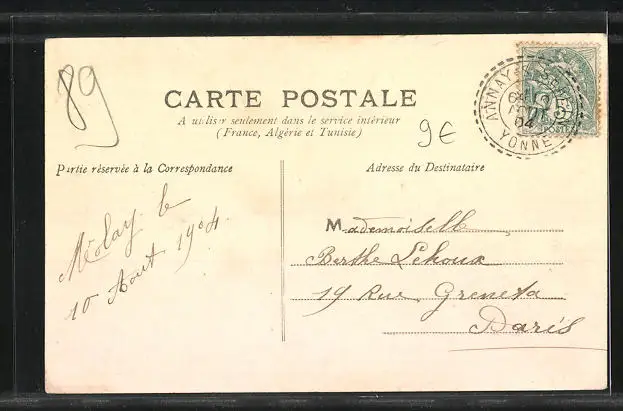 89
CARTE POSTALE
A utiliser seulement dans le service intérieur
(France, Algérie et Tunisie)
9€
ANNAY
04
YONNE
POSTES
Partie réservée à la Correspondance
Adresse du Destinataire
Môlay le
10 Aout 1904.
Mademoiselle
Berthe Lehoux
19 Rue Greneta
Paris